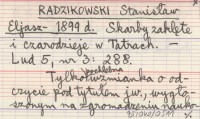 RADZIKOWSKI Stanisław
Eljasz- 1899 d. Skarby zaklęte
i czarodzieje w Tatrach. -
Lud 5, nr 3: 288.
pochlebna
Tylko wzmianka o od-
czycie pod tytułem jw, wygło-
szonym na zgromadzeniu nauko-